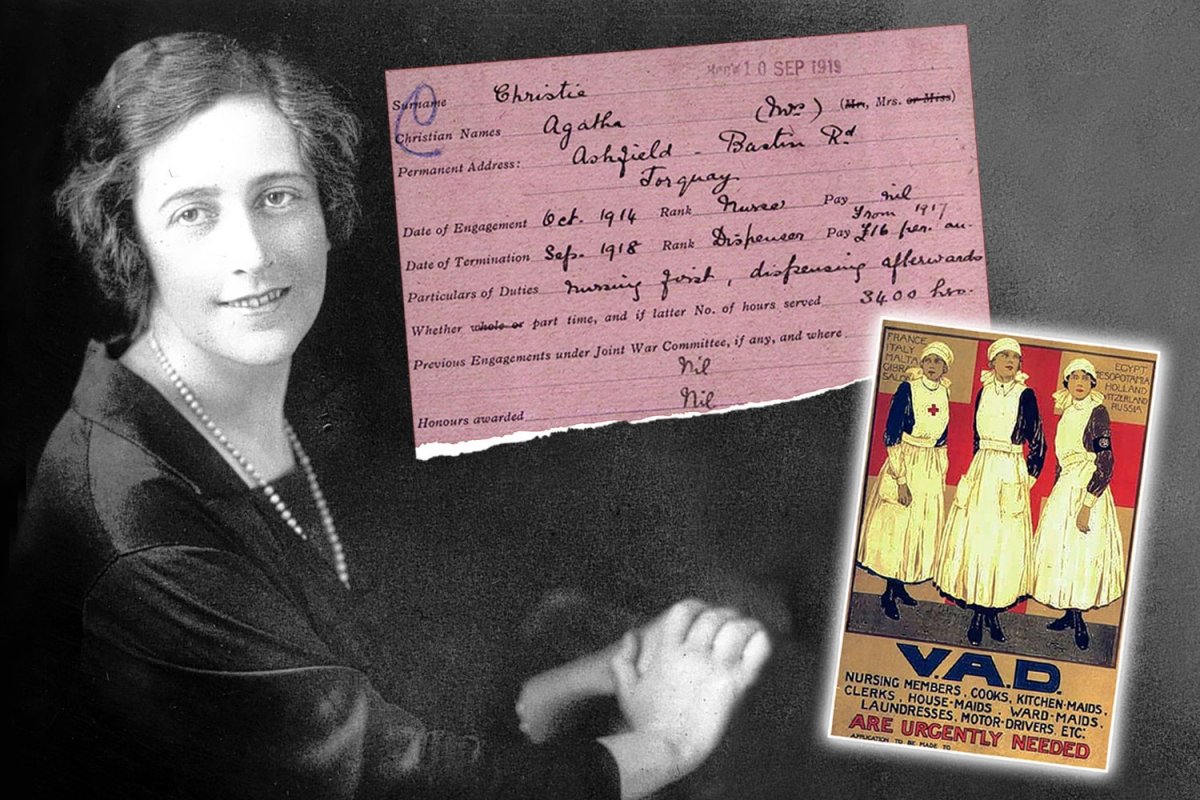 Rec'd 10 SEP 1919
Surname Christie
Christian Names Agatha (Mrs) (Mr, Mrs. or Miss)
Permanent Address: Ashfield - Bastin Rd
Torquay
Date of Engagement Oct. 1914 Rank Nurse Pay nil
From 1917
Date of Termination Sep. 1918 Rank Dispenser Pay £16 per. an.
Particulars of Duties Nursing first, dispensing afterwards
Whether whole or part time, and if latter No. of hours served 3400 hrs.
Previous Engagements under Joint War Committee, if any, and where
Nil
Nil
Honours awarded
FRANCE
ITALY
MALTA
GIBRA
SALO
EGYPT
MESOPOTAMIA
HOLLAND
WITZERLAND
RUSSIA
V.A.D.
NURSING MEMBERS, COOKS, KITCHEN-MAIDS,
CLERKS, HOUSE-MAIDS, WARD-MAIDS,
LAUNDRESSES, MOTOR-DRIVERS, ETC.
ARE URGENTLY NEEDED
APPLICATION TO BE MADE TO